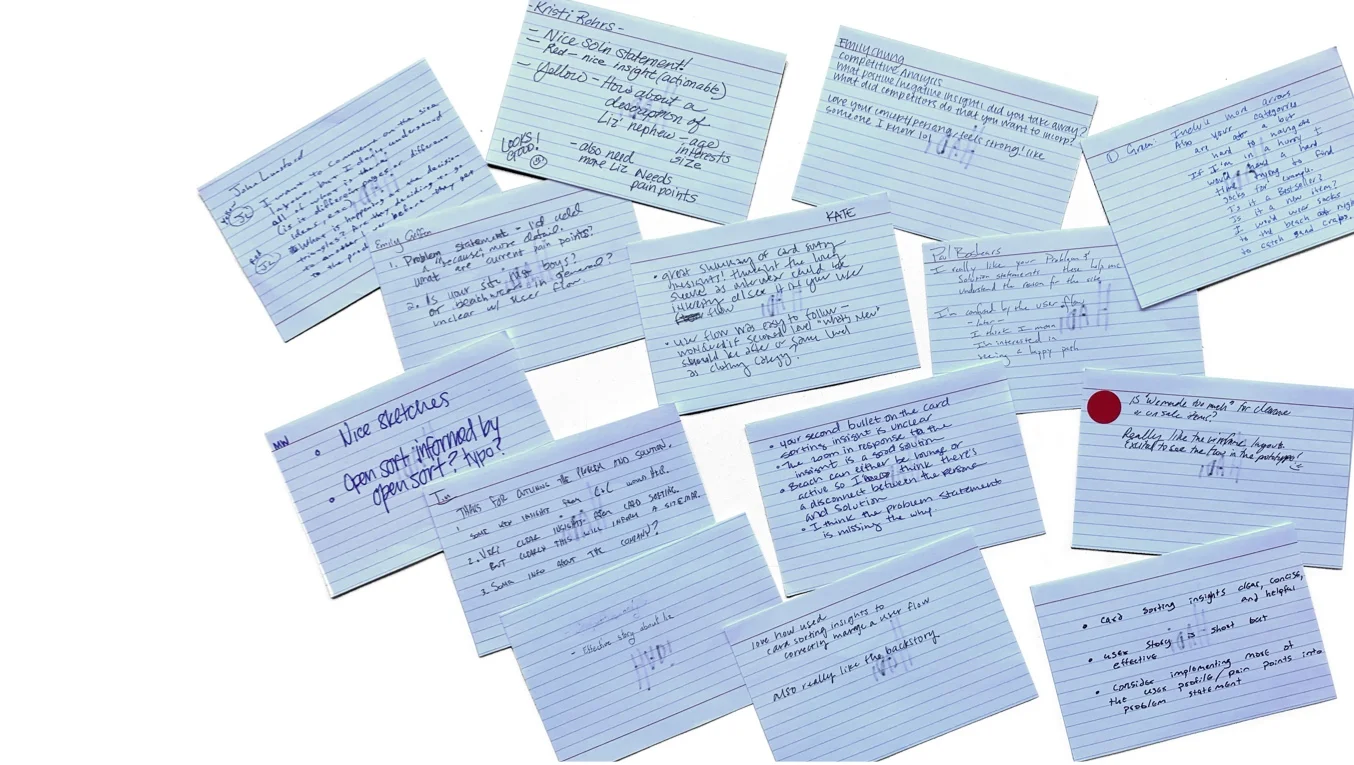 - Kristi Rohrs -
- Nice soln statement!
- Red - nice insight (actionable)
- Yellow - How about a
description of
Liz' nephew - age
interests
size
LOOKS
GOOD!
- also need
more Liz Needs
pain points
EMILY CHUNG
COMPETITIVE ANALYSIS
What positive/negative insights did you take away?
What did competitors do that you want to incorp?
Love your concept/persona, feels strong! like
someone I know lol
① Green:
Include more arrows
Also your categories
are a bit
hard to navigate
If I'm in a hurry I
would have a hard
time trying to find
socks for example.
Is it a Bestseller?
Is it a new item?
I would wear socks
to the beach at night
to catch sand crabs.
John
JL
I want to comment on the size
(is it different
ideas
What is happening
to another
to the
before they get
JL
Emily Griffin
1. Problem statement - I'd add
a "because," more detail.
what are current pain points?
2. Is your site just boys?
or beachwear in general?
unclear w/ user flow.
KATE
• great summary of card sorting
insights! thought the long
sleeve as
interesting
flow
• user flow was easy to follow -
wondered if second level "what's new"
should be after or same level
as clothing category.
I really like your Problem &
Solution statements these help me
understand the reason for the site
I'm confused by the user flow
- Later -
I think I mean
I'm interested in
seeing a happy path
MW
• Nice sketches
• Open sort informed by
open sort? typo?
THANKS FOR OUTLINING THE PROBLEM AND SOLUTION.
1. SOME KEY INSIGHT FROM C&C WOULD HELP.
2. VERY CLEAR INSIGHTS FROM CARD SORTING.
BUT CLEARLY THIS WILL INFORM A SITEMAP.
3. SOME INFO ABOUT THE COMPANY?
• your second bullet on the card
sorting insight is unclear
• The zoom in response to the
insight is a good solution
• Beach can either be lounge or
active so I think there's
a disconnect between the persona
and solution
• I think the problem statement
is missing the why.
Is "We made too much" for clearance
or on sale items?
Really like the wireframe layouts
Excited to see the flow in the prototype!
- Effective story about liz
HAD!
love how used
card sorting insights to
correctly manage a user flow
also really like the backstory
• card sorting insights clear, concise,
and helpful
• user story is short but
effective
• consider implementing more of
the user profile/pain points into
problem statement